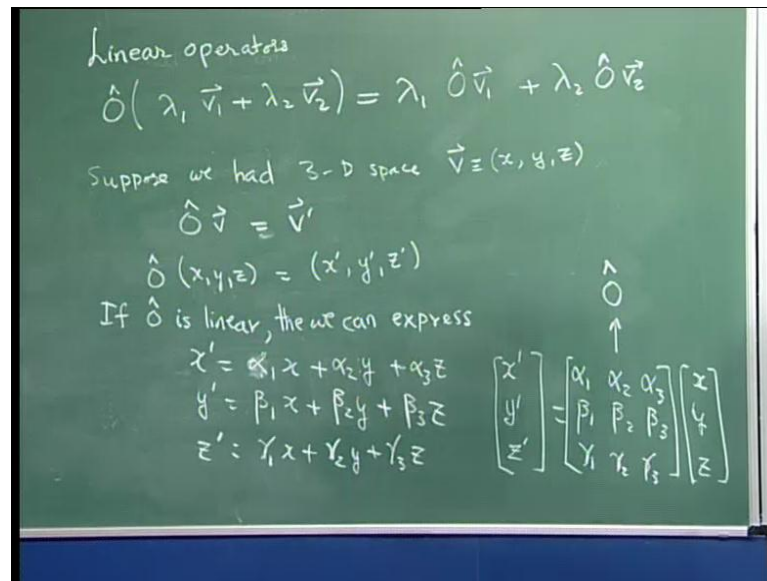 Linear operators
Ô( λ₁ v⃗₁ + λ₂ v⃗₂ ) = λ₁ Ô v⃗₁ + λ₂ Ô v⃗₂
Suppose we had 3-D space v⃗ ≡ (x, y, z)
Ô v⃗ = v⃗'
Ô (x, y, z) = (x', y', z')
If Ô is linear, the we can express
x' = α₁x + α₂y + α₃z
y' = β₁x + β₂y + β₃z
z' = γ₁x + γ₂y + γ₃z
Ô
↑
[x'] = [α₁ α₂ α₃] [x]
[y'] = [β₁ β₂ β₃] [y]
[z'] = [γ₁ γ₂ γ₃] [z]